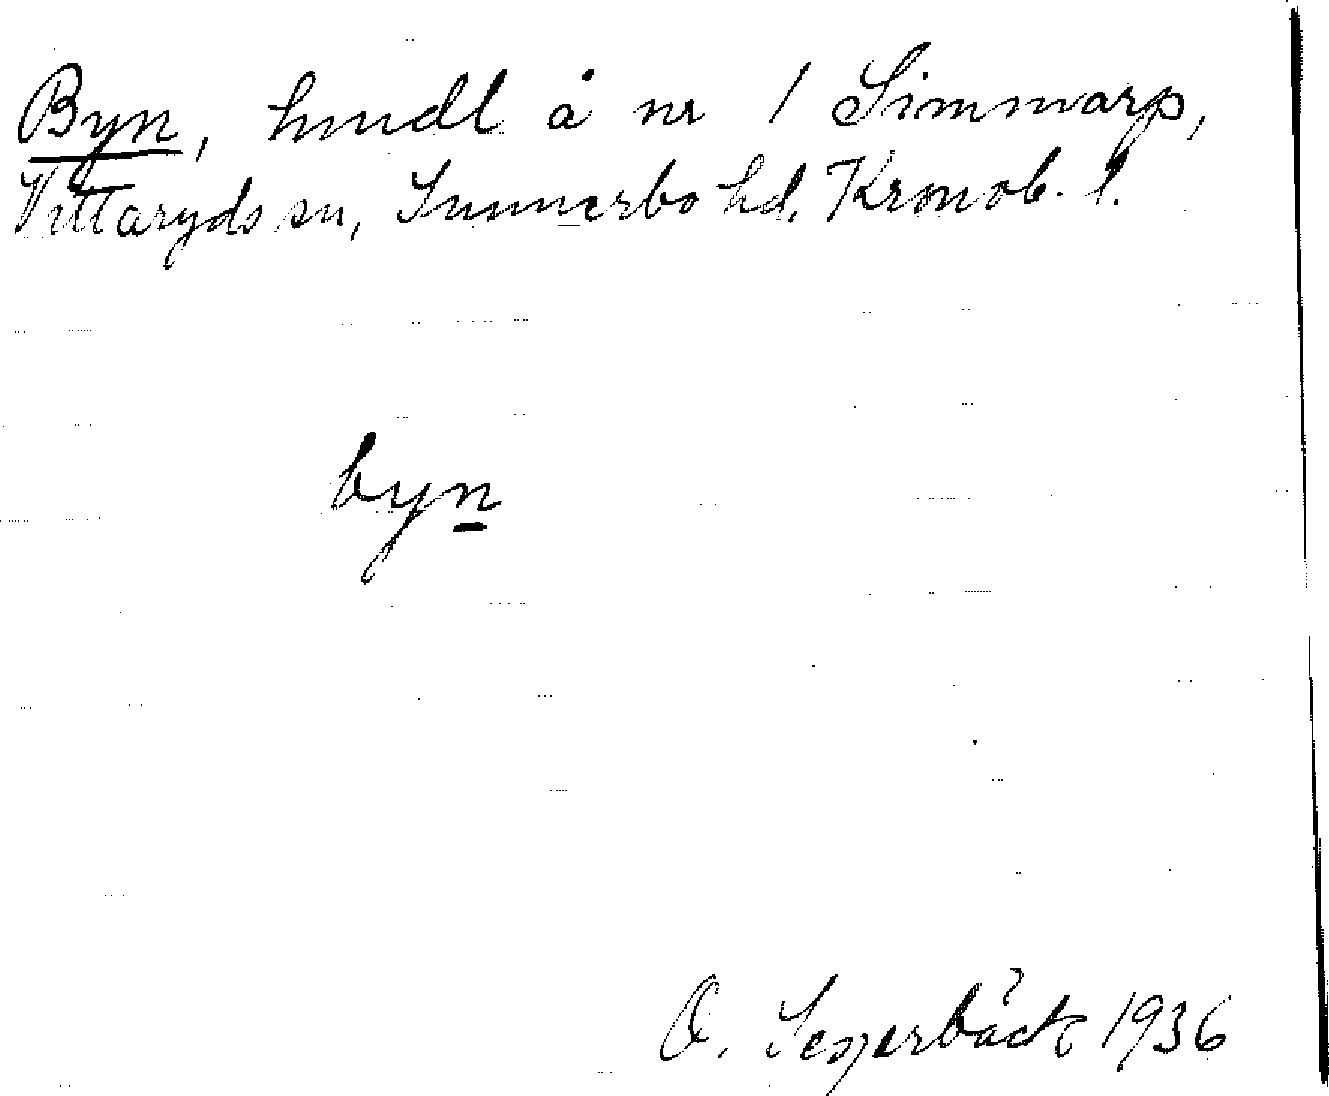 Byn, hmdl å nr 1 Simmarp,
Vittaryds sn, Sunnerbo hd, Kronob. l.
byn
O. 1936